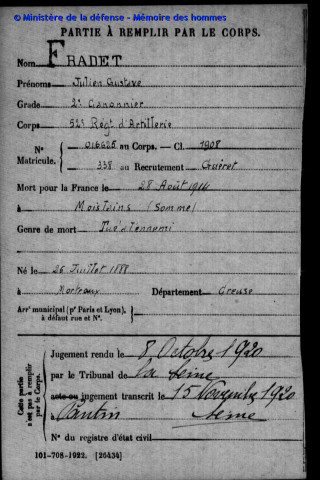 © Ministère de la défense - Mémoire des hommes
PARTIE À REMPLIR PAR LE CORPS.
Nom FRADET
Prénoms Julien Gustave
Grade 2e Canonnier
Corps 52e Régt d'Artillerie
N° 016625 au Corps. — Cl. 1908
Matricule. 338 au Recrutement Guéret
Mort pour la France le 28 Août 1914
à Moislains (Somme)
Genre de mort Tué à l'ennemi
Né le 26 Juillet 1888
à Mortroux Département Creuse
Arr' municipal (p' Paris et Lyon),
à défaut rue et N°.
Cette partie
n'est pas à remplir
par le Corps.
Jugement rendu le 8 Octobre 1920
par le Tribunal de la Seine
acte ou jugement transcrit le 15 Novembre 1920
à Pantin Seine
N° du registre d'état civil
101-708-1922. [26434]